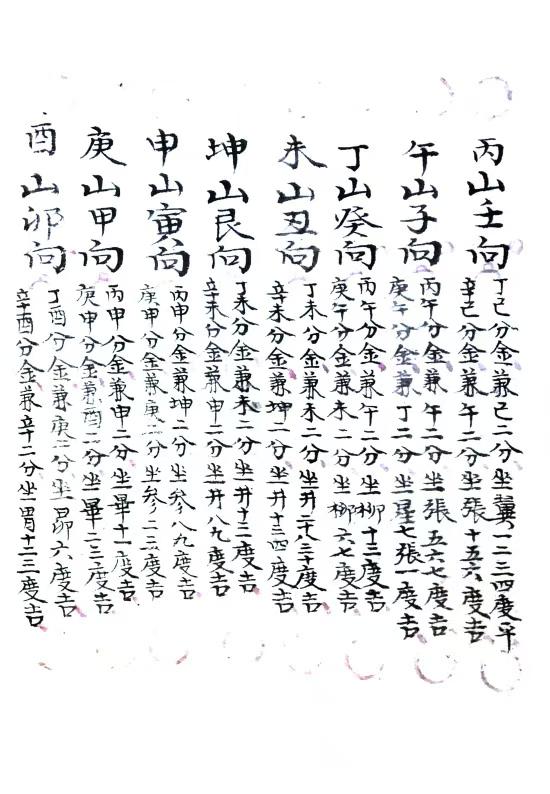 丙山壬向
丁巳分金兼巳二分坐翼一二三四度平
辛巳分金兼午二分坐張十五六度吉
午山子向
丙午分金兼午二分坐張五六七度吉
庚午分金兼丁二分坐星七張一度吉
丁山癸向
丙午分金兼午二分坐柳十三度吉
庚午分金兼未二分坐柳六七度吉
未山丑向
丁未分金兼未二分坐井二十八三十度吉
辛未分金兼坤二分坐井十三四度吉
坤山艮向
丁未分金兼未二分坐井十二度吉
辛未分金兼申二分坐井八九度吉
申山寅向
丙申分金兼坤二分坐參八九度吉
庚申分金兼庚二分坐參二三度吉
庚山甲向
丙申分金兼申二分坐畢十一度吉
庚申分金兼酉二分坐畢二三度吉
酉山卯向
丁酉分金兼庚二分坐昴六度吉
辛酉分金兼辛二分坐胃十二三度吉